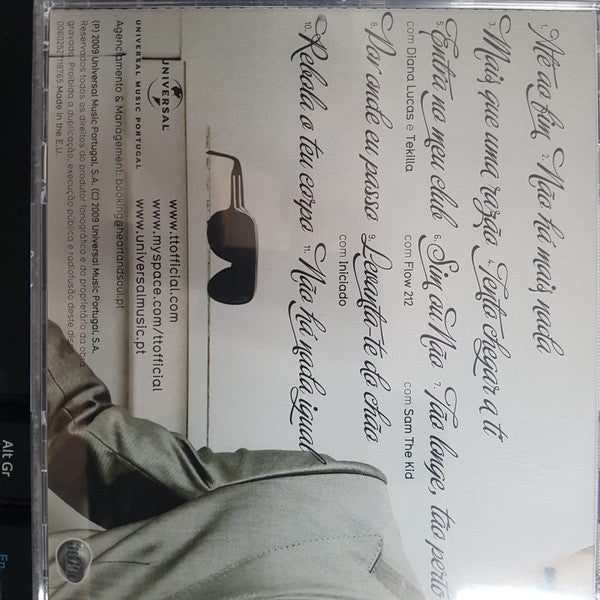 1. Até ao fim 2. Não há mais nada
3. Mais que uma razão 4. Tento chegar a ti
5. Entra no meu club 6. Sim ou Não 7. Tão longe, tão perto
com Diana Lucas e Tekilla com Flow 212 com Sam The Kid
8. Por onde eu passo 9. Levanta-te do chão
com Iniciado
10. Rebola o teu corpo 11. Não há nada igual
www.ttofficial.com
www.myspace.com/ttofficial
www.universalmusic.pt
UNIVERSAL
UNIVERSAL MUSIC PORTUGAL
Agenciamento & Management: booking@heartandsoul.pt
(P) 2009 Universal Music Portugal, S.A. (C) 2009 Universal Music Portugal, S.A.
Reservados todos os direitos do produtor fonográfico e do proprietário da obra
gravada. Proibida a duplicação, execução pública e radiofusão deste disco
Made in the E.U.
Alt Gr